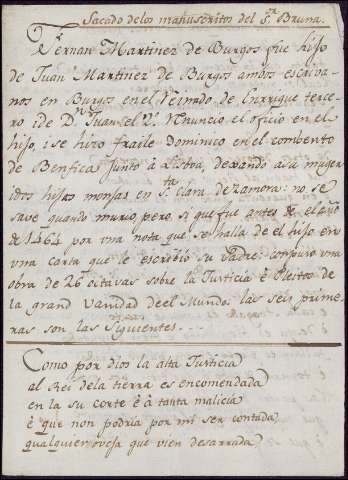 Sacado delos manuscritos del Sr. Bruna.
Fernan Martinez de Burgos fue hijo
de Juan Martinez de Burgos ambos escriva-
nos en Burgos en el Reinado de Enrrique terce-
ro i de Dn Juan el 2º. Renuncio el oficio en el
hijo, i se hizo fraile Dominico en el combento
de Benfica junto à Lisboa, dexando a su muger
i dos hijas monjas en Sta. Clara de Zamora: no se
save quando murio, pero si que fue antes de el año
de 1464 por una nota que se halla de el hijo en
una carta que le escribio su Padre: compuso una
obra de 26 octavas sobre la Justicia è Pleitos de
la grand vanidad de el Mundo. las seis prime-
ras son las siguientes...
Como por dios la alta Justicia
al Rei de la tierra es encomendada
en la su corte è à tanta malicia
è que non podria por mi ser contada
qualquier oveja que vien desarrada